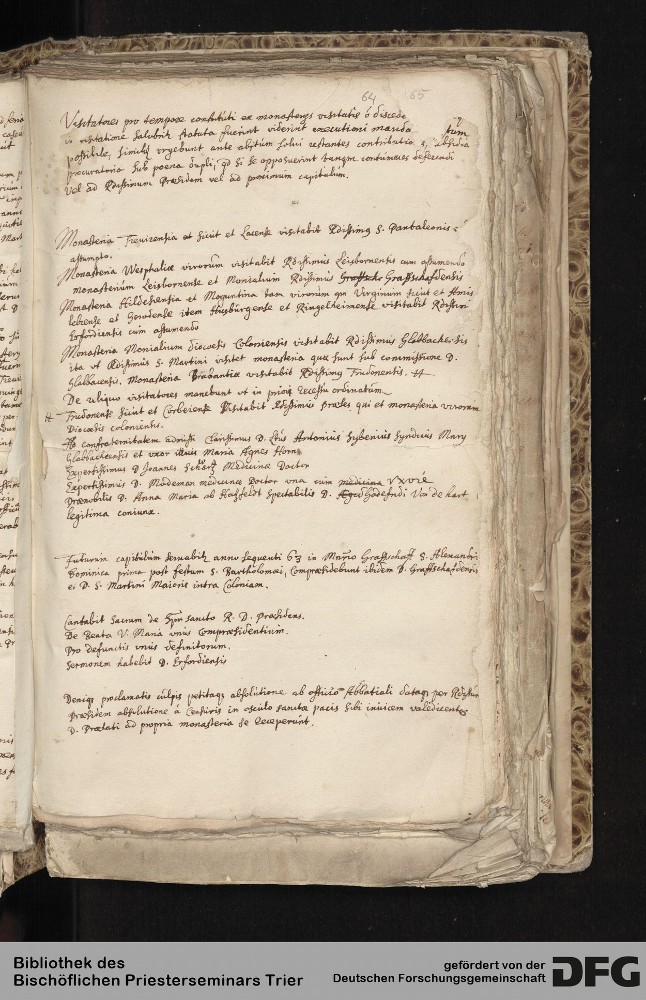 64 65
Visitatores pro tempore constituti ex monasterijs visitatis
in visitatione salubrit statuta fuerint viderint executioni manda
possibile, similiq urgebunt ante abitum solui restantes contributio
procuratoria sub poena dupli, qd si se opposuerint tanqm contumaces
vel ad Rdissimum Praesidem vel ad proximum capitulum.
Monasteria Treuirensia et sicut et Lacense visitabit Rdissimq S. Pantaleonis
assumpto.
Monasteria Westphaliae virorum visitabit Rdissimus Leisbornensis cum assumendo
monasterium Leisbornense et Monialium Rdissimus Graffschafdensis
Monasteria Hildesensia et Moguntina tam virorum qm Virginum sicut et
et Gerodense item Huisburgense et Ringelheimense visitabit Rdissim
Erfordiensis cum assumendo
Monasteria Monialium dioecesis Coloniensis visitabit Rdissimus Gladbachensis
ita vt Rdissimus S. Martini visitet monasteria quae sunt sub commissione D.
Gladbacensis, Monasteria Brabantiae visitabit Rdissimq Trudonensis.
De reliquo visitatores manebunt vt in priori recessu ordinatum
Trudonense sicut et Corbeiense Visitabit Rdissimus Praeses qui et monasteria virorum
Dioecesis coloniensis.
Ad confraternitatem admissi Clarissimus D. Antonius Sybenius Syndicus Mary
Gladbachensis et vxor illius Maria Agnes Horn
Expertissimus D Joannes Medicinae Doctor
Expertissimus D. Mademan medicinae Doctor vna cum medicina vxore
Praenobilis D. Anna Maria ab Hatzfeldt Spectabilis D. Godefridi Von de hart
legitima coniunx.
Futurum capitulum seruabitr anno sequenti 63 in Graffschaff S. Alexandri
Dominica prima post festum S. Bartholomaei, Compraesidebunt ibidem D. Graffschafdensis
et D. S. Martini Maioris intra Coloniam.
Cantabit sacrum de Spu sancto R. D. Praesidens.
De Beata V. Maria vnus Compraesidentium.
Pro defunctis vnus definitorum.
Sermonem habebit D. Erfordiensis
Deniq proclamatis culpis petitaq absolutione ab officio Abbatiali dataq per Rdissim
Praesidem absolutione a Censuris in osculo sanctae pacis sibi inuicem valedicentes
D. Praelati ad propria monasteria se receperunt.
Bibliothek des
Bischöflichen Priesterseminars Trier
gefördert von der
Deutschen Forschungsgemeinschaft
DFG